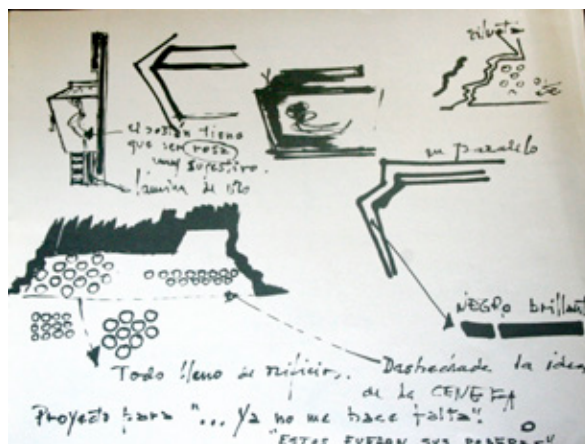 silueta
el sostén tiene
que ser rosa
muy sugestivo.
lámina de oro
en paralelo
NEGRO brillant
Todo lleno de orificios.
Deshechada la idea
de la CENEFA
Proyecto para "... Ya no me hace falta".
"ESTOS FUERON SUS PODERES"